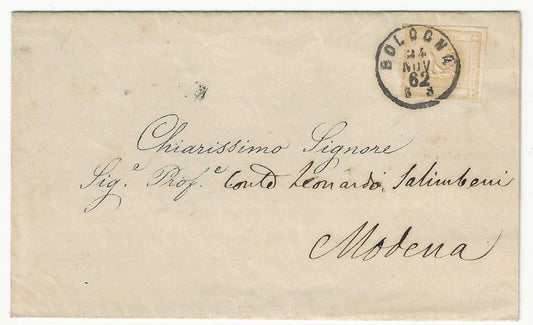 BOLOGNA
24
NOV
62
3 S
Chiarissimo Signore
Sig.e Prof.e Conte Leonardo Salimbeni
Modena